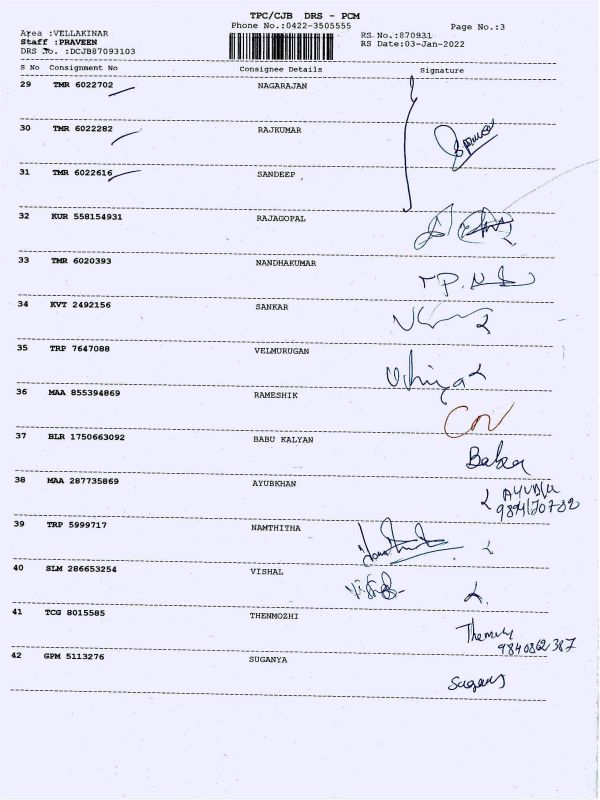 TPC/CJB DRS - PCM
Phone No.:0422-3505555
Page No.:3
Area :VELLAKINAR
Staff :PRAVEEN
DRS No. :DCJB87093103
RS No.:870931
RS Date:03-Jan-2022
S No Consignment No Consignee Details Signature
29 TMR 6022702 NAGARAJAN
30 TMR 6022282 RAJKUMAR
31 TMR 6022616 SANDEEP
32 KUR 558154931 RAJAGOPAL
33 TMR 6020393 NANDHAKUMAR
34 KVT 2492156 SANKAR
35 TRP 7647088 VELMURUGAN
36 MAA 855394869 RAMESHIK
CN
37 BLR 1750663092 BABU KALYAN
38 MAA 287735869 AYUBKHAN
39 TRP 5999717 NAMTHITHA
40 SLM 286653254 VISHAL
41 TCG 8015585 THENMOZHI
9840862387
42 GPM 5113276 SUGANYA